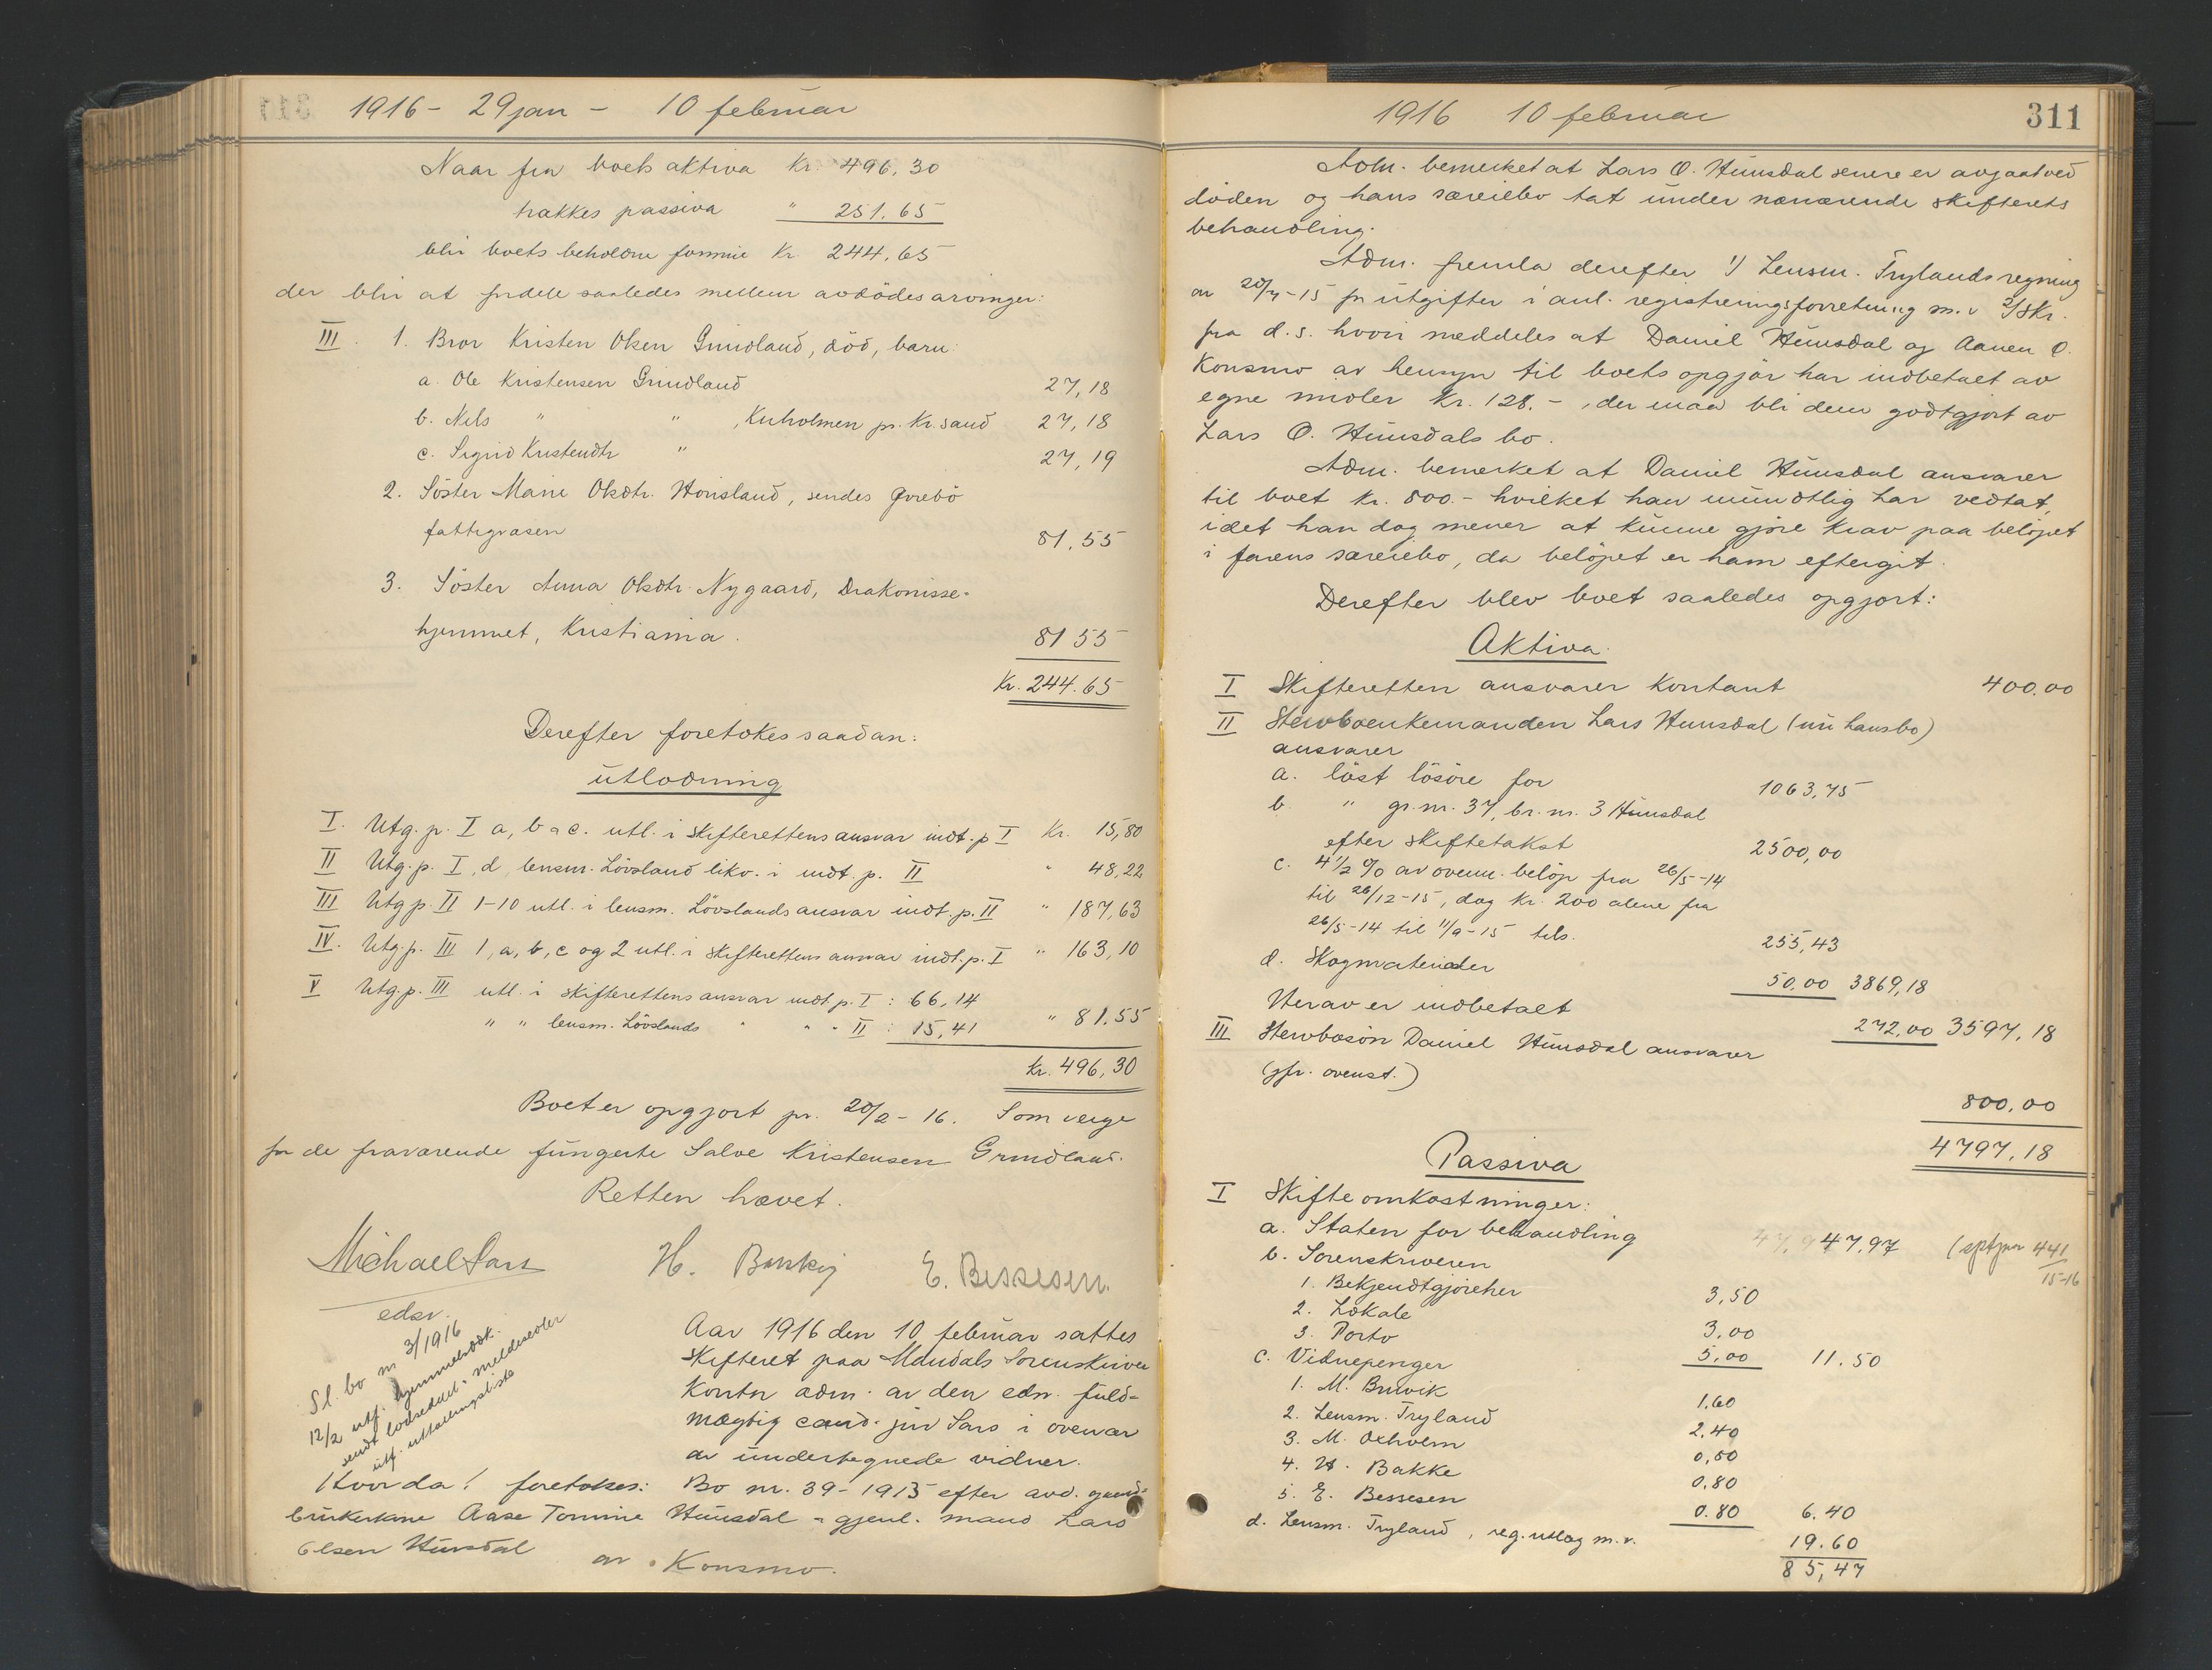 1916 - 29 jan - 10 februar
Naar fra boets aktiva Kr. 496,30
trækkes passiva " 251.65
blir boets beholdne formue Kr. 244,65
der blir at fordele saaledes mellem avdödes arvinger:
III. 1. Bror Kristen Olsen Grindland, död, barn:
a. Ole Kristensen Grindland 27,18
b. Nels " " , Kuholmen pr. Kr.sand 27,18
c. Sigrid Kristendtr " 27,19
2. Söster Marie Olsdtr. Honsland, sendes Grebö
fattigvæsen 81,55
3. Söster Anna Olsdtr. Nygaard, Diakonisse-
hjemmet, Kristiania. 81 55
Kr. 244.65
Derefter foretokes saadan:
utlodning
I. Utg. p. I a, b & c. utl. i skifterettens ansvar indt. p I Kr. 15,80
II Utg. p. I, d, lensm. Lövsland likv. i indt. p. II " 48,22
III Utg p. II 1-10 utl. i lensm. Lövslands ansvar indt. p. II " 187,63
IV. Utg. p. III 1, a, b, c og 2 utl. i skifterettens ansvar indt. p. I " 163,10
V Utg. p. III utl. i skifterettens ansvar indt. p. I : 66,14
" " lensm. Lövslands " " " II : 15,41 " 81.55
Kr. 496,30
Boet er opgjort pr. 20/2 - 16. Som verge
for de fraværende fungerte Salve Kristensen Grindland.
Retten hævet.
Michael Sars H. E. Bessesen.
edsv.
Sl. bo nr 3/1916
12/2 utf. hjemmelsdok.
sendt lodseddel & meldesedler
utf. uttællingsliste
Aar 1916 den 10 februar sattes
skifteret paa Mandals Sorenskriver
Kontor adm. av den edsv. fuld-
mægtig cand. jur Sars i overvær
av undertegnede vidner.
Hvorda! foretokes: Bo nr. 39 - 1915 efter avd. gaard-
brukerkone Aase Tomine Hunsdal & gjenl. mand Lars
Olsen Hunsdal av Konsmo.
1916 10 februar 311
Adm. bemerket at Lars O. Hunsdal senere er avgaat ved
döden og hans særeiebo tat under nærværende skifterets
behandling.
Adm. fremla derefter 1) Lensm. Trylands regning
av 20/4-15 for utgifter i anl. registreringsforretning m.v 2) Skr.
fra d.s. hvori meddeles at Daniel Hunsdal og Aanen O.
Konsmo av hensyn til boets opgjör har indbetalt av
egne midler Kr. 128.-, der maa bli dem godtgjort av
Lars O. Hunsdals bo.
Adm. bemerket at Daniel Hunsdal ansvarer
til boet Kr. 800.- hvilket han mundtlig har vedtat,
idet han dog mener at kunne gjöre krav paa belöpet
i farens særeiebo, da belöpet er ham eftergit.
Derefter blev boet saaledes opgjort:
Aktiva.
I Skifteretten ansvarer Kontant 400.00
II Stervboenkemanden Lars Hunsdal (nu hans bo)
ansvarer
a. löst lösöre for 1063,75
b. " gr. nr. 37, br. nr. 3 Hunsdal
efter skiftetakst 2500,00
c. 4 1/2 % av ovenn. belöp fra 26/5-14
til 26/12-15, dog Kr. 200 alene fra
26/5-14 til 11/9-15 tils. 255,43
d. Skogmaterialer 50,00 3869,18
Herav er indbetalt 272,00 3597,18
III Stervbosön Daniel Hunsdal ansvarer
(jfr. ovenst.) 800,00
4797,18
Passiva
I Skifteomkostninger:
a. Staten for behandling 47,97 (sptjnr 441/15-16
b. Sorenskriveren
1. Bekjendtgjörelser 3,50
2. Lokale 3,00
3. Porto 5,00 11.50
c. Vidnepenger
1. M. Bruvik 1.60
2. Lensm. Tryland 2.40
3. M. Oxholm 0,80
4. H. Bakke 0.80
5. E. Bessesen 0.80 6.40
d. Lensm. Tryland, reg. utlæg m.v. 19.60
85,47